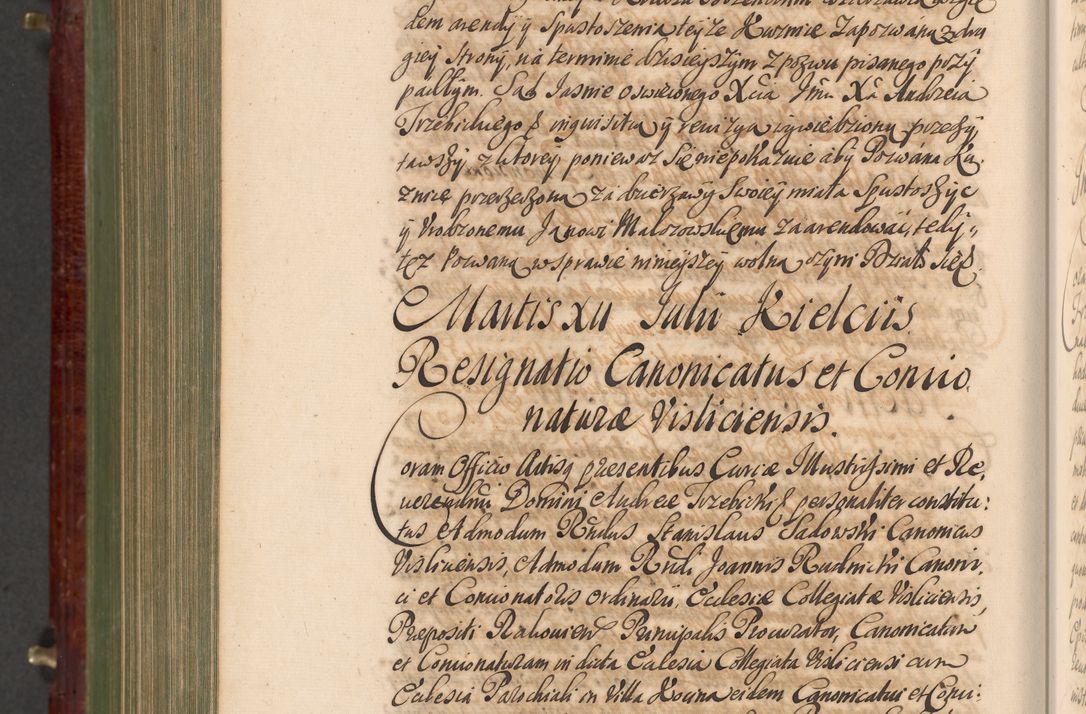 dem arendy y Spustoszenia teyże Kuźnice Zapozwaną z dru
giey strony, na terminie dzisieyszym z pozwu pisanego przy
padłym. Sąd Jasnie oswieconego Xcia Jmći Xa Andrzeia
Trzebickiego & inquisitią y rewizyą wywiedzioną przeszy
tawszy, z ktorey ponieważ się niepokazuie aby Pozwana Ku
znicę przerzeczoną za dzierżawy Swoiey miała Spustoszyć
y Urodzonemu Janowi Malczowskiemu zaarendować, tedy
też Pozwaną w sprawie ninieyszey wolną czyni Działo się &
Martis XII Julii Kielciis
Resignatio Canonicatus et Concio
naturæ Visliciensis.
Coram Officio Actisq præsentibus Curiæ Illustrissimi et Re,
uerendmi Domini Andreæ Trzebicki & personaliter constitu:
tus Admodum Rndus Stanislaus Sadowski Canonicus
Visliciensis, Admodum Rndi Joannis Rudnicki Canoni,
ci et Concionatoris ordinarii, Ecclesiæ Collegiatæ Visliciensis,
Præpositi Principalis Procurator, Canonicatum
et Concionaturam in dicta Ecclesia Collegiata Visliciensi cum
Ecclesia Parochiali in Villa eidem Canonicatui et Conci: